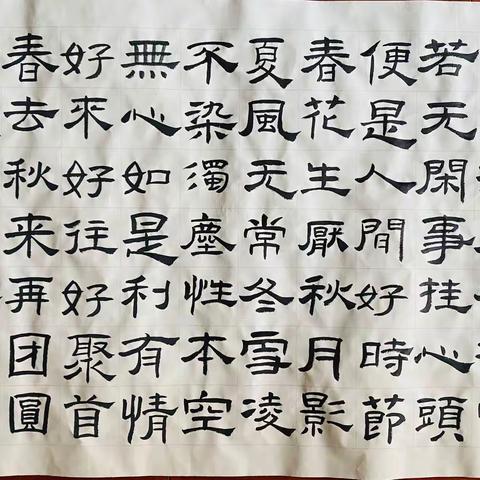 若无閑事挂心頭
便是人間好時節
春花生厭秋月影
夏風无常冬雪凌
不染濁塵性本空
無心如是利有情
好来好往好聚首
春去秋来再团圓